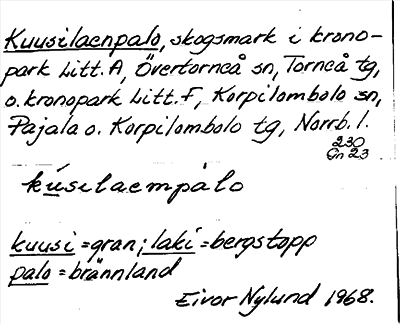 Kuusilaenpalo, skogsmark i krono-
park Litt. A, Övertorneå sn, Torneå tg,
o. kronopark Litt. F, Korpilombolo sn,
Pajala o. Korpilombolo tg, Norrb. l.
230
Gn 23
kúsilaempàlo
kuusi = gran; laki = bergstopp
palo = brännland
Eivor Nylund 1968.